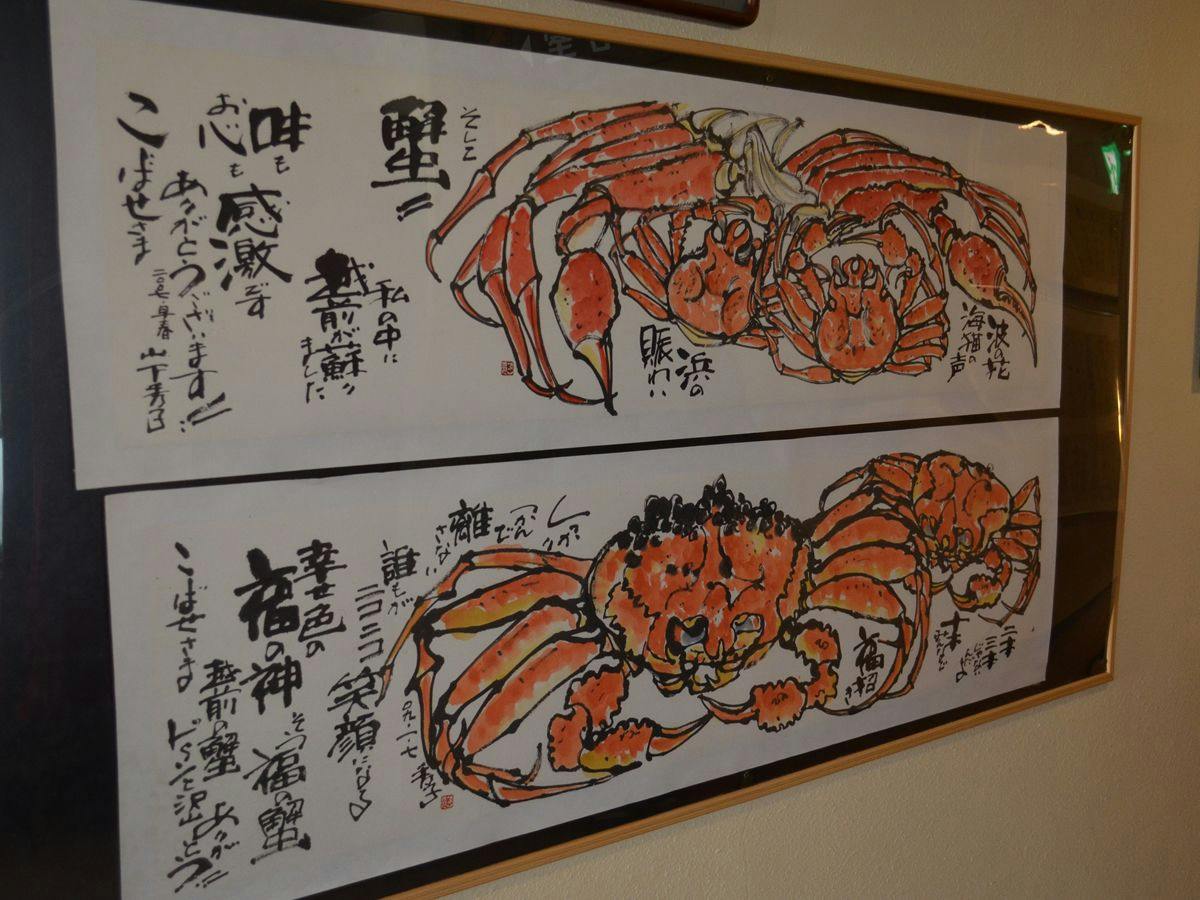 波の花
海猫の
声
浜の
賑わい
そして
蟹〃
私の中に
越前が蘇〃
きました
味も
お心も
感激です
ありがとうございます〃
こばせさま
二〇〇七・早春
山下秀子
二本
三本
十本
福招き
しっかり
つかん
で
離
さない
誰もが
ニコニコ
笑顔になる
〇九・一・七
秀子
幸せ色の
福の神
そう福の蟹
越前の蟹
ありがとう〃
ドーンと沢山
こばせさま